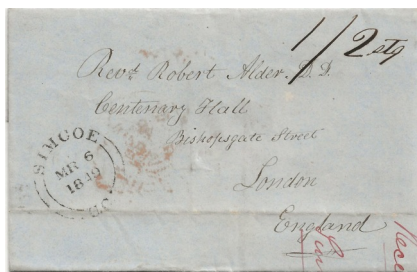 1/2 stg
Revd. Robert Alder, D.D.
Centenary Hall
Bishopsgate Street
London
England
SIMCOE
MR 6
1849
U.C.